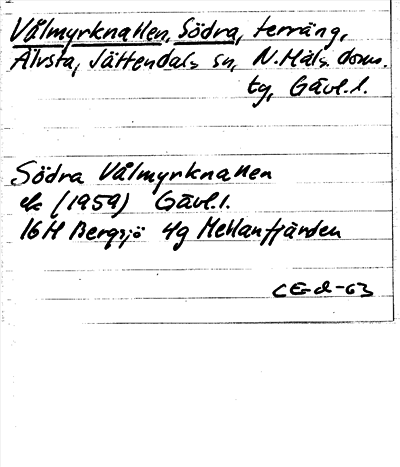 Vålmyrknallen, Södra, terräng,
Älvsta, Jättendals sn, N. Häls. doms.
tg, Gävl. l.
Södra Vålmyrknallen
ek (1959) Gävl. l.
16H Bergsjö 4g Mellanfjärden
CE-d-63